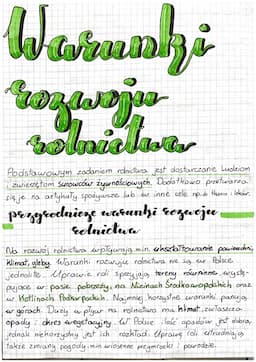 Warunki
rozwoju
rolnictwa
Podstawowym zadaniem rolnictwa jest dostarczanie ludziom
i zwierzętom surowców żywnościowych. Dodatkowo przetwarza
się je na artykuły spożywcze lub w inne cele np. na tkaniny i leków.
przyrodnicze warunki rozwoju
rolnictwa
Na rozwój rolnictwa wpływają m.in. ukształtowanie powierzchni,
klimat, gleby. Warunki rozwoju nie są w Polsce
jednolite. Uprawie roli sprzyjają tereny równinne, wystę-
pujące w pasie pobrzeży, na Nizinach Środkowopolskich oraz
w Kotlinach Podkarpackich. Najmniej korzystne warunki panują
w górach. Duży wpływ na rolnictwo ma klimat, zwłaszcza
opady i okres wegetacyjny. W Polsce ilość opadów jest dobra,
jednak niekorzystny jest ich rozkład. Uprawę roli utrudniają
także zmiany pogody, m.in. wiosenne przymrozki i powodzie.